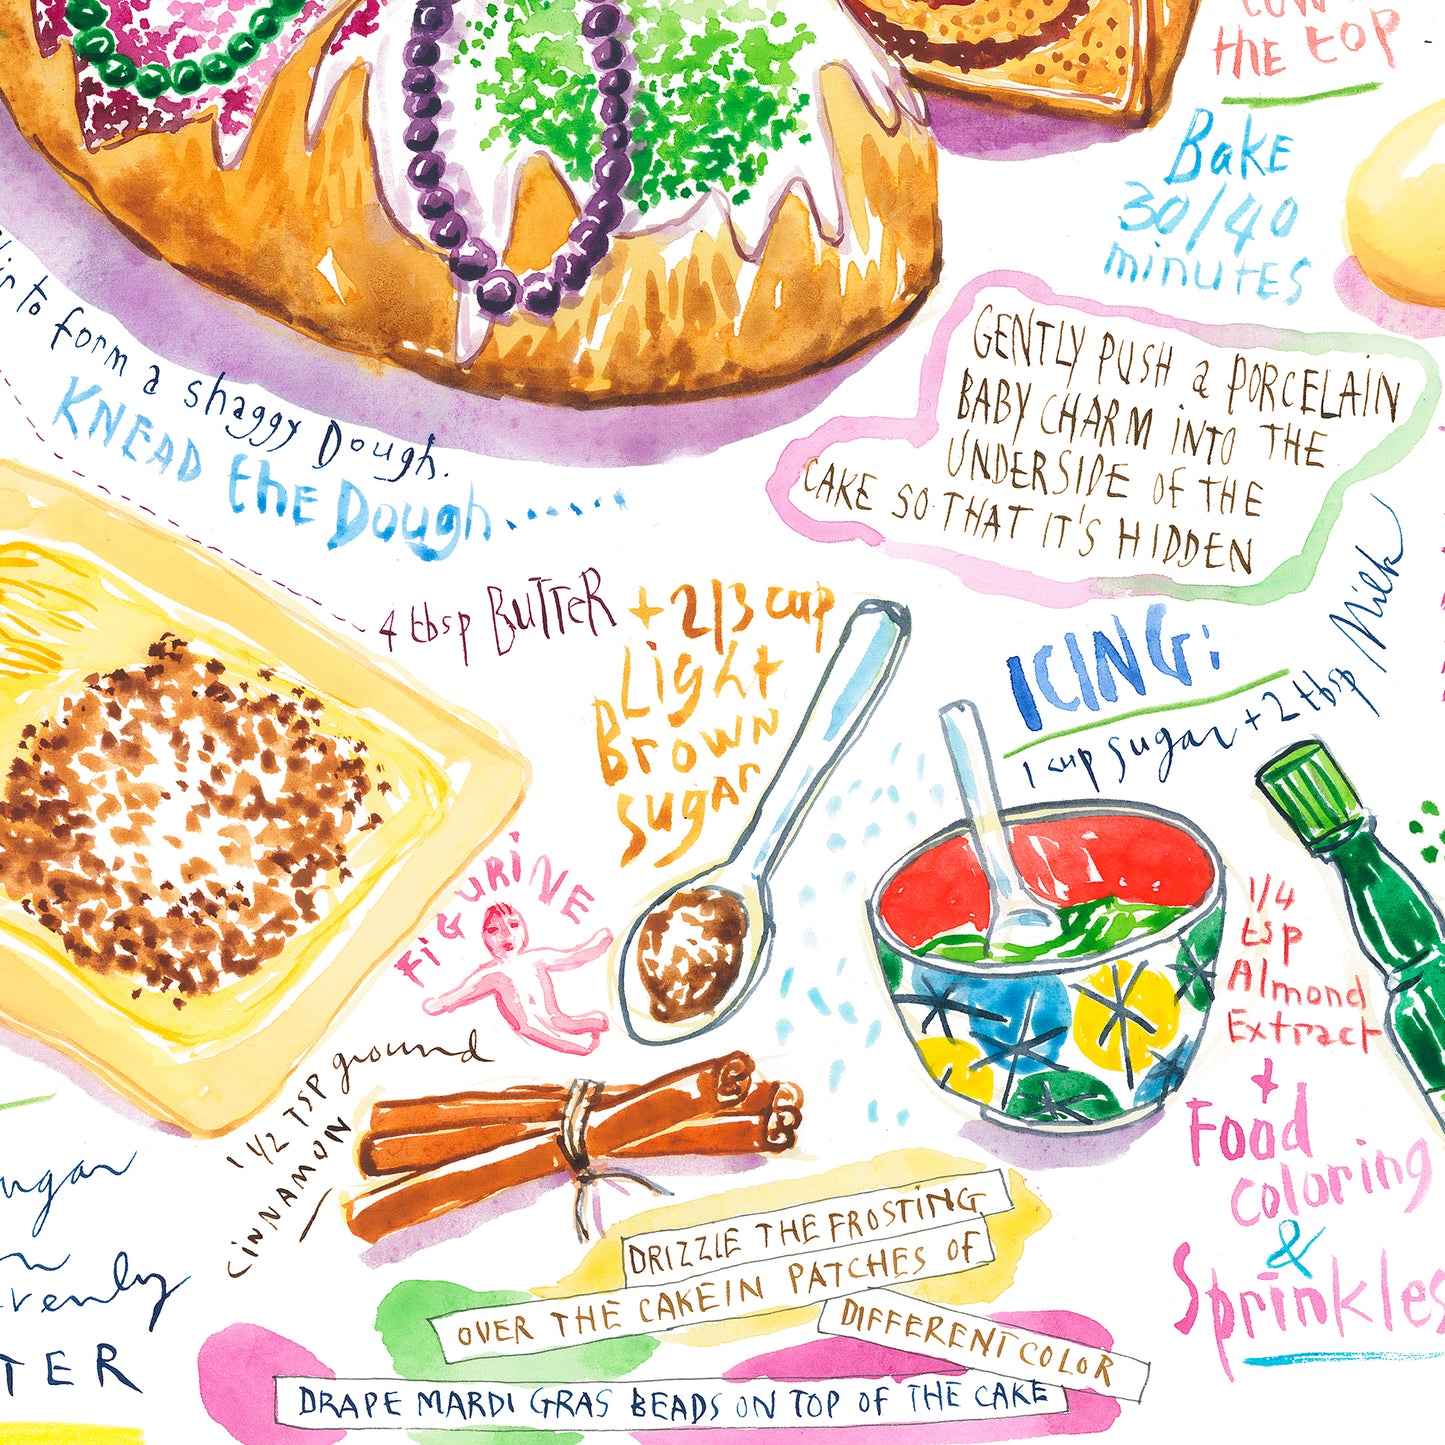 THE TOP
Bake
30/40
minutes
GENTLY PUSH a PORCELAIN
BABY CHARM iNTO THE
UNDERSIDE OF THE
CAKE SO THAT IT'S HIDDEN
to form a shaggy Dough.
KNEAD the Dough......
4 tbsp BUTTER
+ 2/3 cup
Light
Brown
sugar
ICING:
1 cup sugar + 2 tbsp Milk
FiGURiNE
1/4
tsp
Almond
Extract
+
Food
coloring
&
Sprinkles
1 1/2 TSP ground
CiNNAMON
DRIZZLE THE FROSTiNG
OVER THE CAKE IN PATCHES OF
DIFFERENT COLOR
DRAPE MARDI GRAS BEADS ON TOP OF THE CAKE